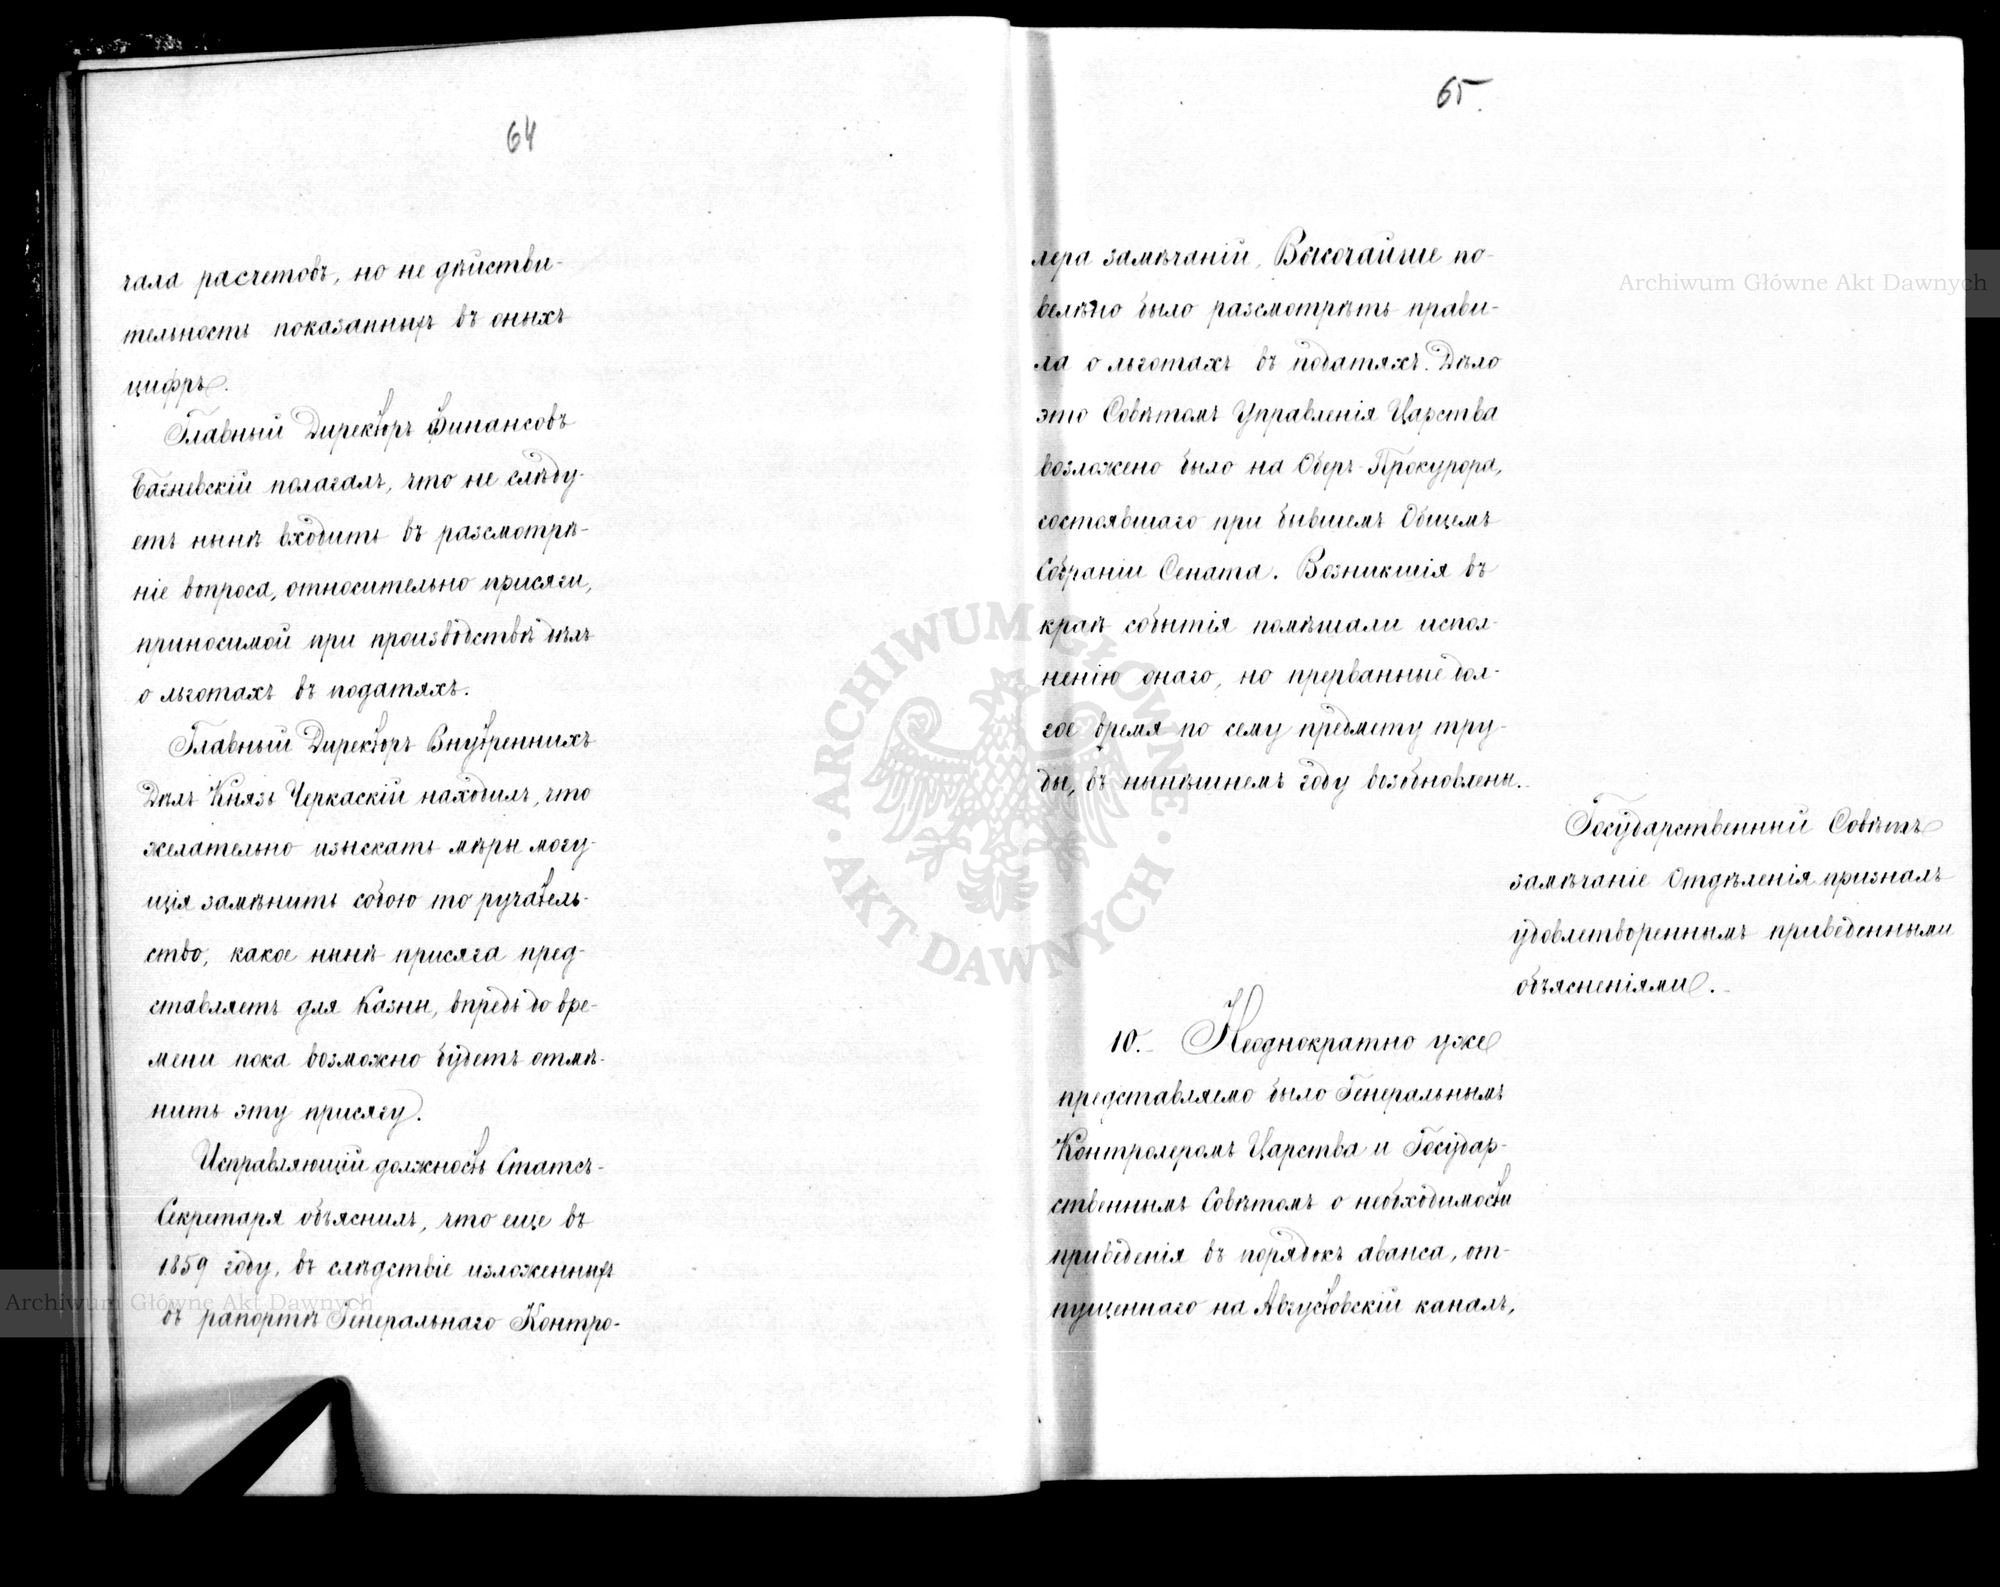 64
чала расчетовъ, но не дѣйстви-
тельность показанныхъ въ оныхъ
цифръ.
Главный Директоръ Финансовъ
Багневскій полагалъ, что не слѣду-
етъ нынѣ входить въ разсмотрѣ-
ніе вопроса, относительно присяги,
приносимой при производствѣ дѣлъ
о льготахъ въ податяхъ.
Главный Директоръ Внутреннихъ
Дѣлъ Князь Черкаскій находилъ, что
желательно изыскать мѣры могу-
щія замѣнить собою то ручатель-
ство, какое нынѣ присяга пред-
ставляетъ для Казны, впредь до вре-
мени пока возможно будетъ отмѣ-
нить эту присягу.
Исправляющій должность Статсъ-
Секретаря объяснилъ, что еще въ
1859 году, въ слѣдствіе изложенныхъ
въ рапортѣ Генеральнаго Контро-
65.
лера замѣчаній, Высочайше по-
велѣно было разсмотрѣть прави-
ла о льготахъ въ податяхъ. Дѣло
это Совѣтомъ Управленія Царства
возложено было на Оберъ-Прокурора,
состоявшаго при бывшемъ Общемъ
Собраніи Сената. Возникшія въ
краѣ событія помѣшали испол-
ненію онаго, но прерванные дол-
гое время по сему предмету тру-
ды, въ нынѣшнемъ году возобновлены.
Государственный Совѣтъ
замѣчаніе Отдѣленія призналъ
удовлетвореннымъ приведенными
объясненіями.
10. Неоднократно уже
представляемо было Генеральнымъ
Контролеромъ Царства и Государ-
ственнымъ Совѣтомъ о необходимости
приведенія въ порядокъ аванса, от-
пущеннаго на Августовскій каналъ,
Archiwum Główne Akt Dawnych
Archiwum Główne Akt Dawnych
ARCHIWUM GŁÓWNE · AKT DAWNYCH ·